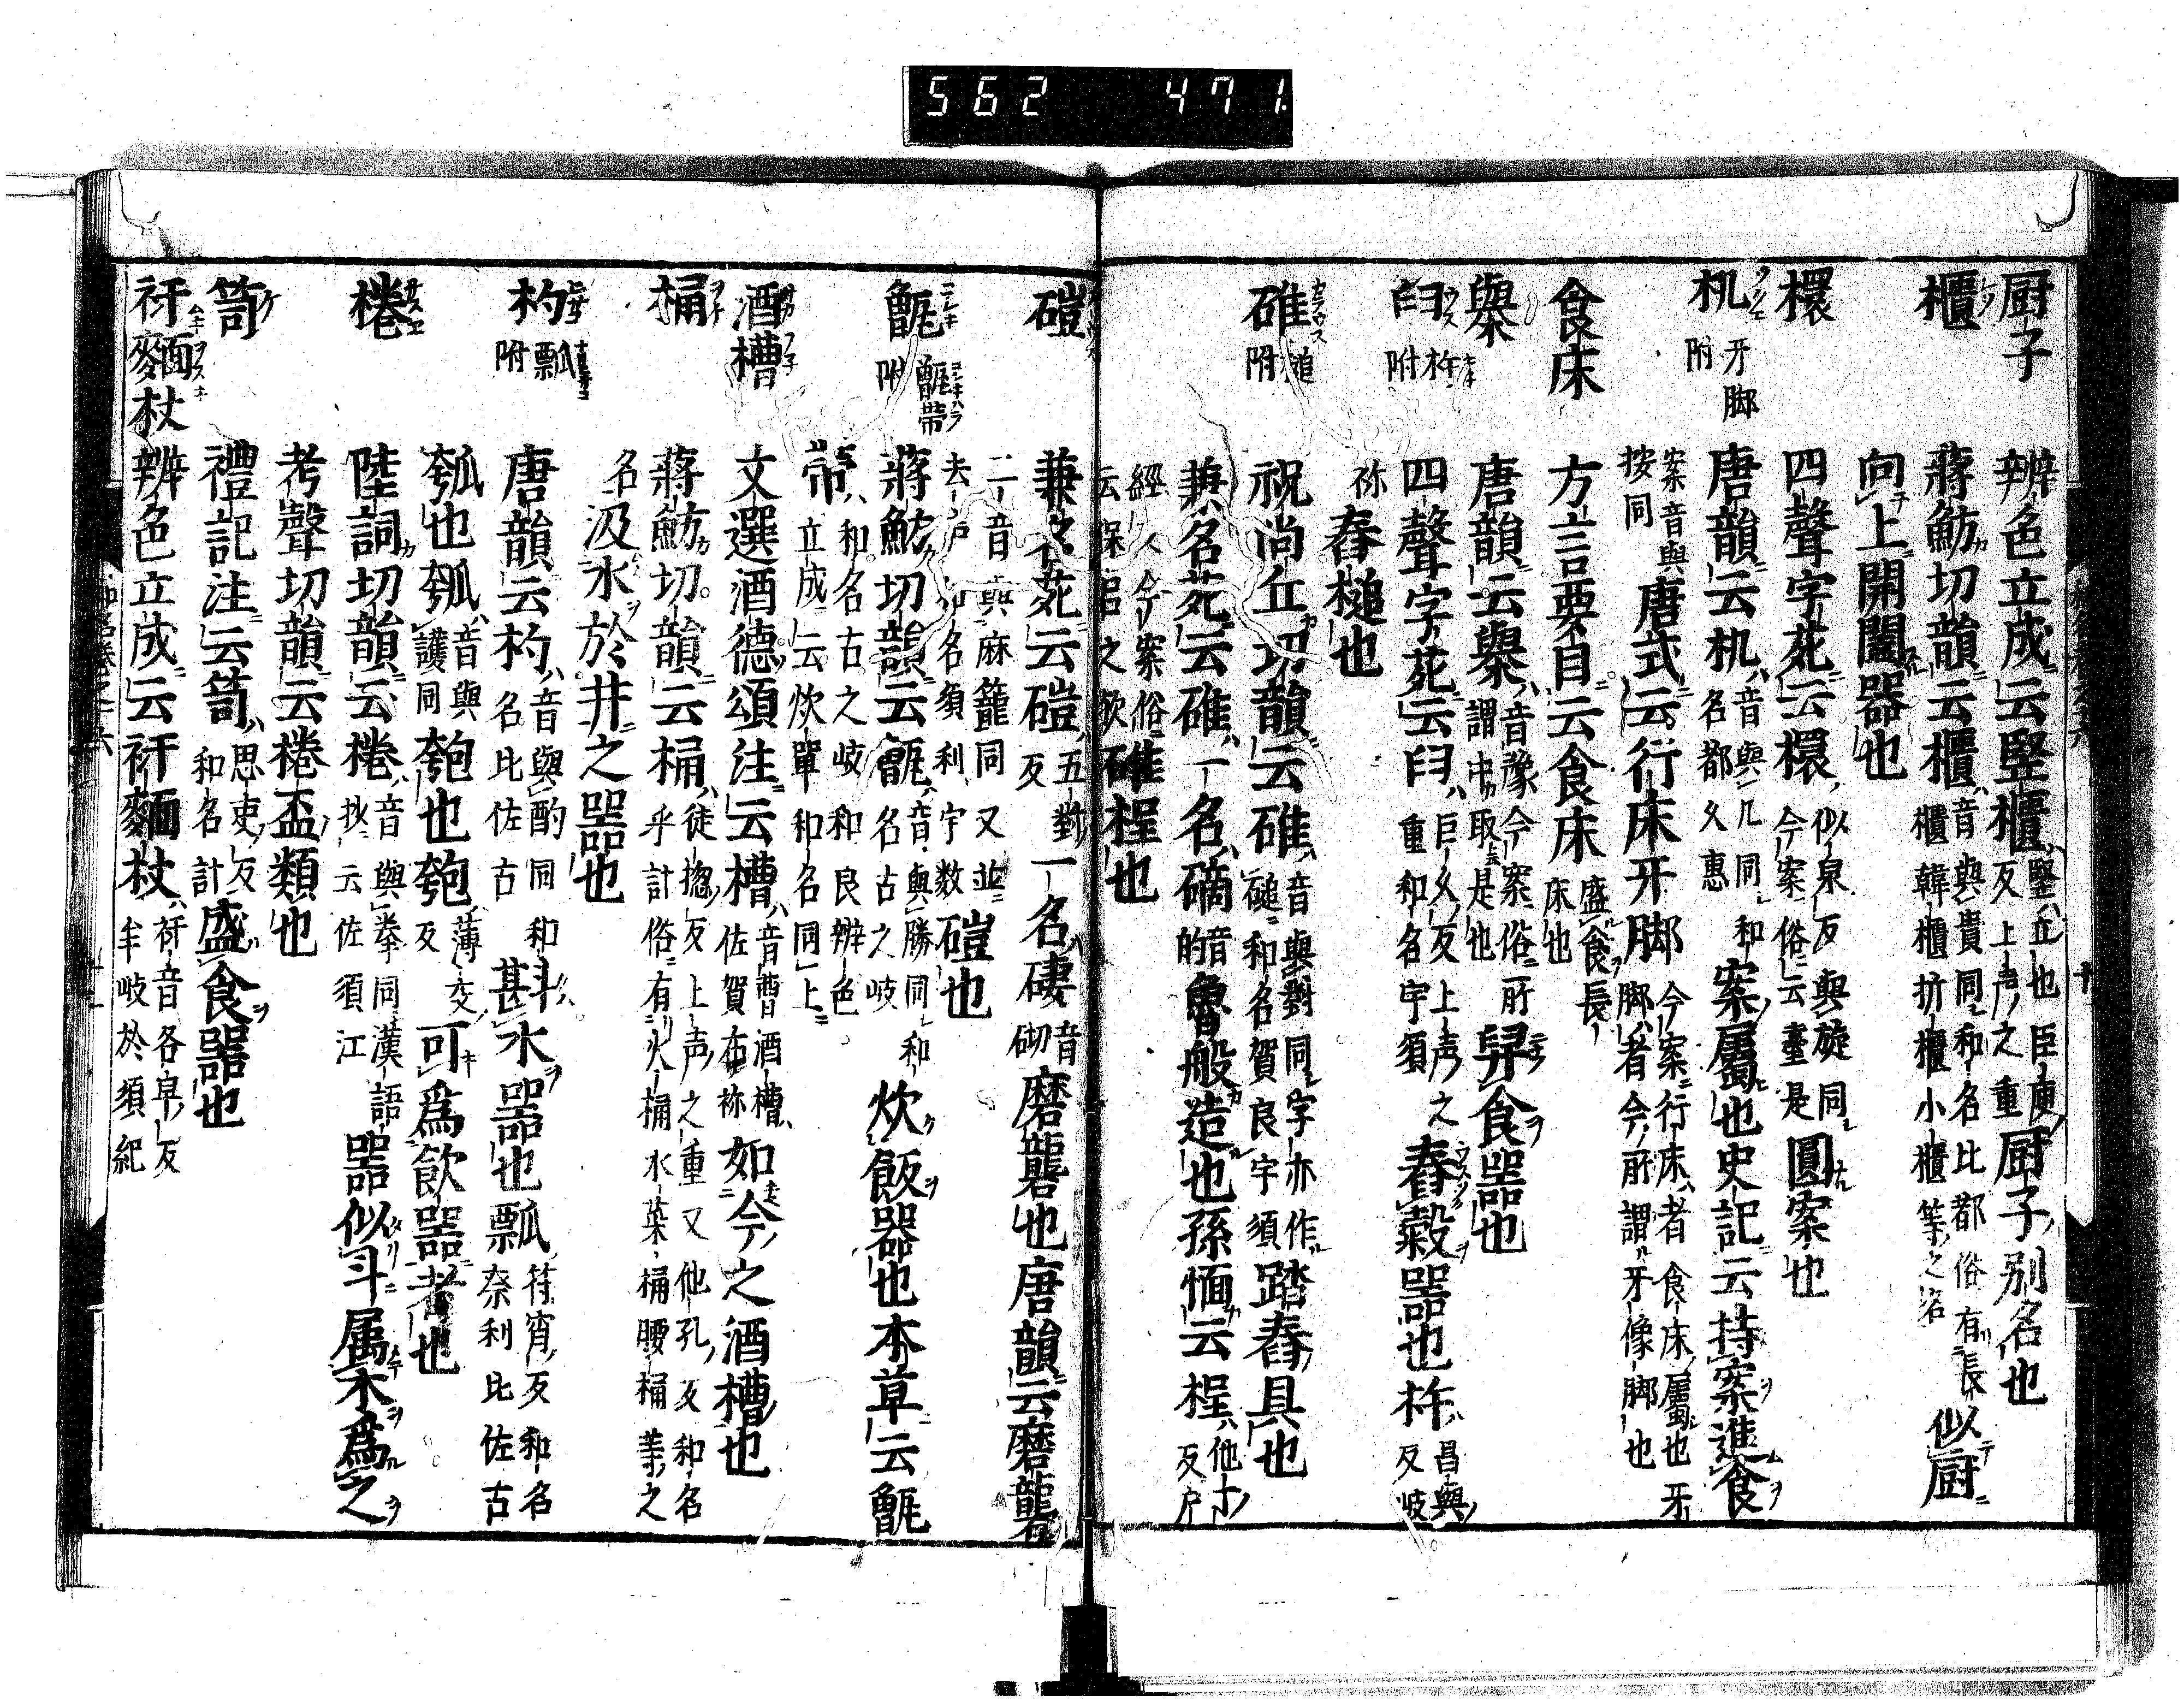 562 471
厨子 辨色立成云竪櫃竪立也臣庾反上声之重厨子別名也
櫃 蔣魴切韻云櫃音與貴同和名比都俗有長櫃韓櫃折櫃小櫃等之名似厨
向上開闔器也
櫎 四聲字苑云櫎似泉反與旋同今案俗云臺是圓案也
机牙脚附 唐韻云机音與几同和名都久惠案屬也史記云持案進食
案音與按同唐式云行床牙脚今案行床者食床屬也牙脚者今所謂牙像脚也
食床 方言要目云食床盛食長床也
轝 唐韻云轝音豫今案俗所謂中取是也舁食器也
臼杵附 四聲字苑云臼巨久反上声之重和名宇須舂穀器也杵昌與反岐
祢舂槌也
碓槌附 祝尚丘切韻云碓音與對同字亦作䃍和名賀良宇須踏舂具也
兼名苑云碓一名䃐音的魯般造也孫愐云桯他丁反戸
碓桯也
磑 兼名苑云磑五對反一名䃀音砌磨礱也唐韻云磨礱
二音與麻籠同磑也
甑甑帶附 蔣魴切韻云甑音與勝同和名古之岐炊飯器也本草云甑
帶和名古之岐和良辨色立成云炊單和名同上
酒槽 文選酒德頌注云槽音曹酒槽佐賀布祢如今之酒槽也
桶 蔣魴切韻云桶徒揔反上声之重又他孔反和名乎計俗有火桶水桶菜桶腰桶等之
名汲水於井之器也
杓瓢附 唐韻云杓音與酌同和名比佐古斟水器也瓢符宵反和名奈利比佐古
瓠也瓠音與護同匏也匏薄交反可為飲器者也
棬 陸詞切韻云棬音與拳同漢語抄云佐須江器似斗属木為之
考聲切韻云棬盃類也
笥 禮記注云笥思吏反和名計盛食器也
衦麵杖 辨色立成云衦麵杖衦音各旱反牟岐於須紀